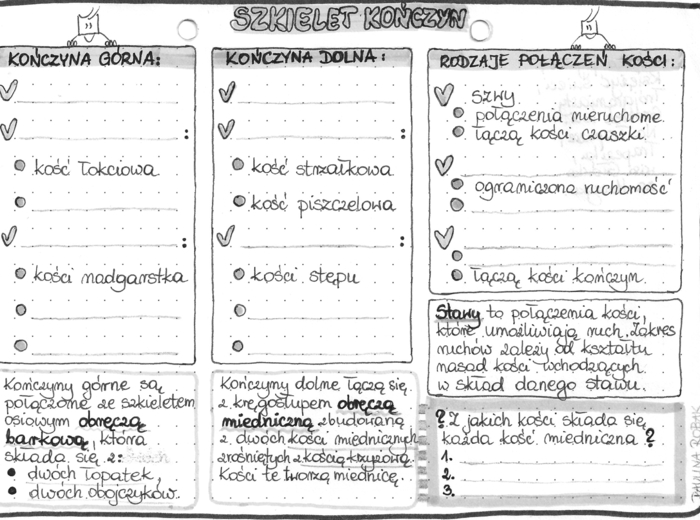 SZKIELET KOŃCZYN
KOŃCZYNA GÓRNA:
:
kość łokciowa
:
kości nadgarstka
Kończyny górne są
połączone ze szkieletem
osiowym obręczą
barkową, która
składa się z:
dwóch łopatek,
dwóch obojczyków.
KOŃCZYNA DOLNA:
:
kość strzałkowa
kość piszczelowa
:
kości stępu
Kończyny dolne łączą się
z kręgosłupem obręczą
miedniczną zbudowaną
z dwóch kości miednicznych
zrośniętych z kością krzyżową.
Kości te tworzą miednicę.
RODZAJE POŁĄCZEŃ KOŚCI:
szwy
połączenia nieruchome
łączą kości czaszki
ograniczona ruchomość
łączą kości kończyn
Stawy to połączenia kości,
które umożliwiają ruch. Zakres
ruchów zależy od kształtu
nasad kości wchodzących
w skład danego stawu.
? Z jakich kości składa się
każda kość miedniczna ?
1.
2.
3.